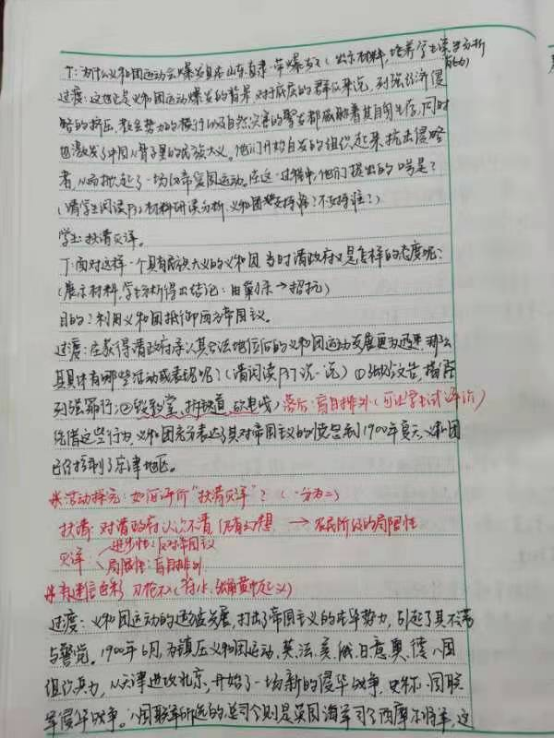 T：为什么义和团运动会爆发且在山东、直隶一带爆发？（出示材料，培养学生读史分析能力）
过渡：这也正是义和团运动爆发的背景 对于底层的群众来说，列强经济侵
略的挤压，教会势力的横行以及自然灾害的繁多都威胁着其自身生存，同时
也激发了中国人骨子里的民族大义。他们开始自发的组织起来，抗击侵略
者，从而掀起了一场反帝爱国运动。在这一过程中，他们提出的口号是？
（请学生阅读P 材料研读分析，义和团 支持谁？不支持谁？）
学生：扶清灭洋。
T：面对这样一个具有民族大义的义和团 当时清政府又是怎样的态度呢？
（展示材料，学生分析得出结论：由剿杀→招抚）
目的：利用义和团抵御西方帝国主义。
过渡：在获得清政府承认其合法地位后的义和团运动发展更为迅速 那么
其具体有哪些活动或表现呢？（请阅读P 说一说）①张贴文告，揭露
列强罪行；②毁教堂、拆铁道、砍电线）落后、盲目排外（可让学生试评价）
凭借这些行为 义和团充分表达了其对帝国主义的愤怒 到1900年夏天，义和团
已经控制了京津地区。
※活动探究：如何评价"扶清灭洋"？（一分为二）
扶清：对清政府认识不清 仍有幻想 → 农民阶级的局限性
灭洋：进步性：反对帝国主义
局限性：盲目排外
※ 迷信色彩 刀枪不入（ 黄巾起义）
过渡：义和团运动的迅速发展，打击了帝国主义的在华势力，引起了其不满
与警觉。1900年6月，为镇压义和团运动，英、法、美、俄、日、意、奥、德八国
组织兵力，从天津进攻北京，开始了一场新的侵华战争，史称八国联
军侵华战争。八国联军所选的总司令则是英国海军司令西摩尔将军，这